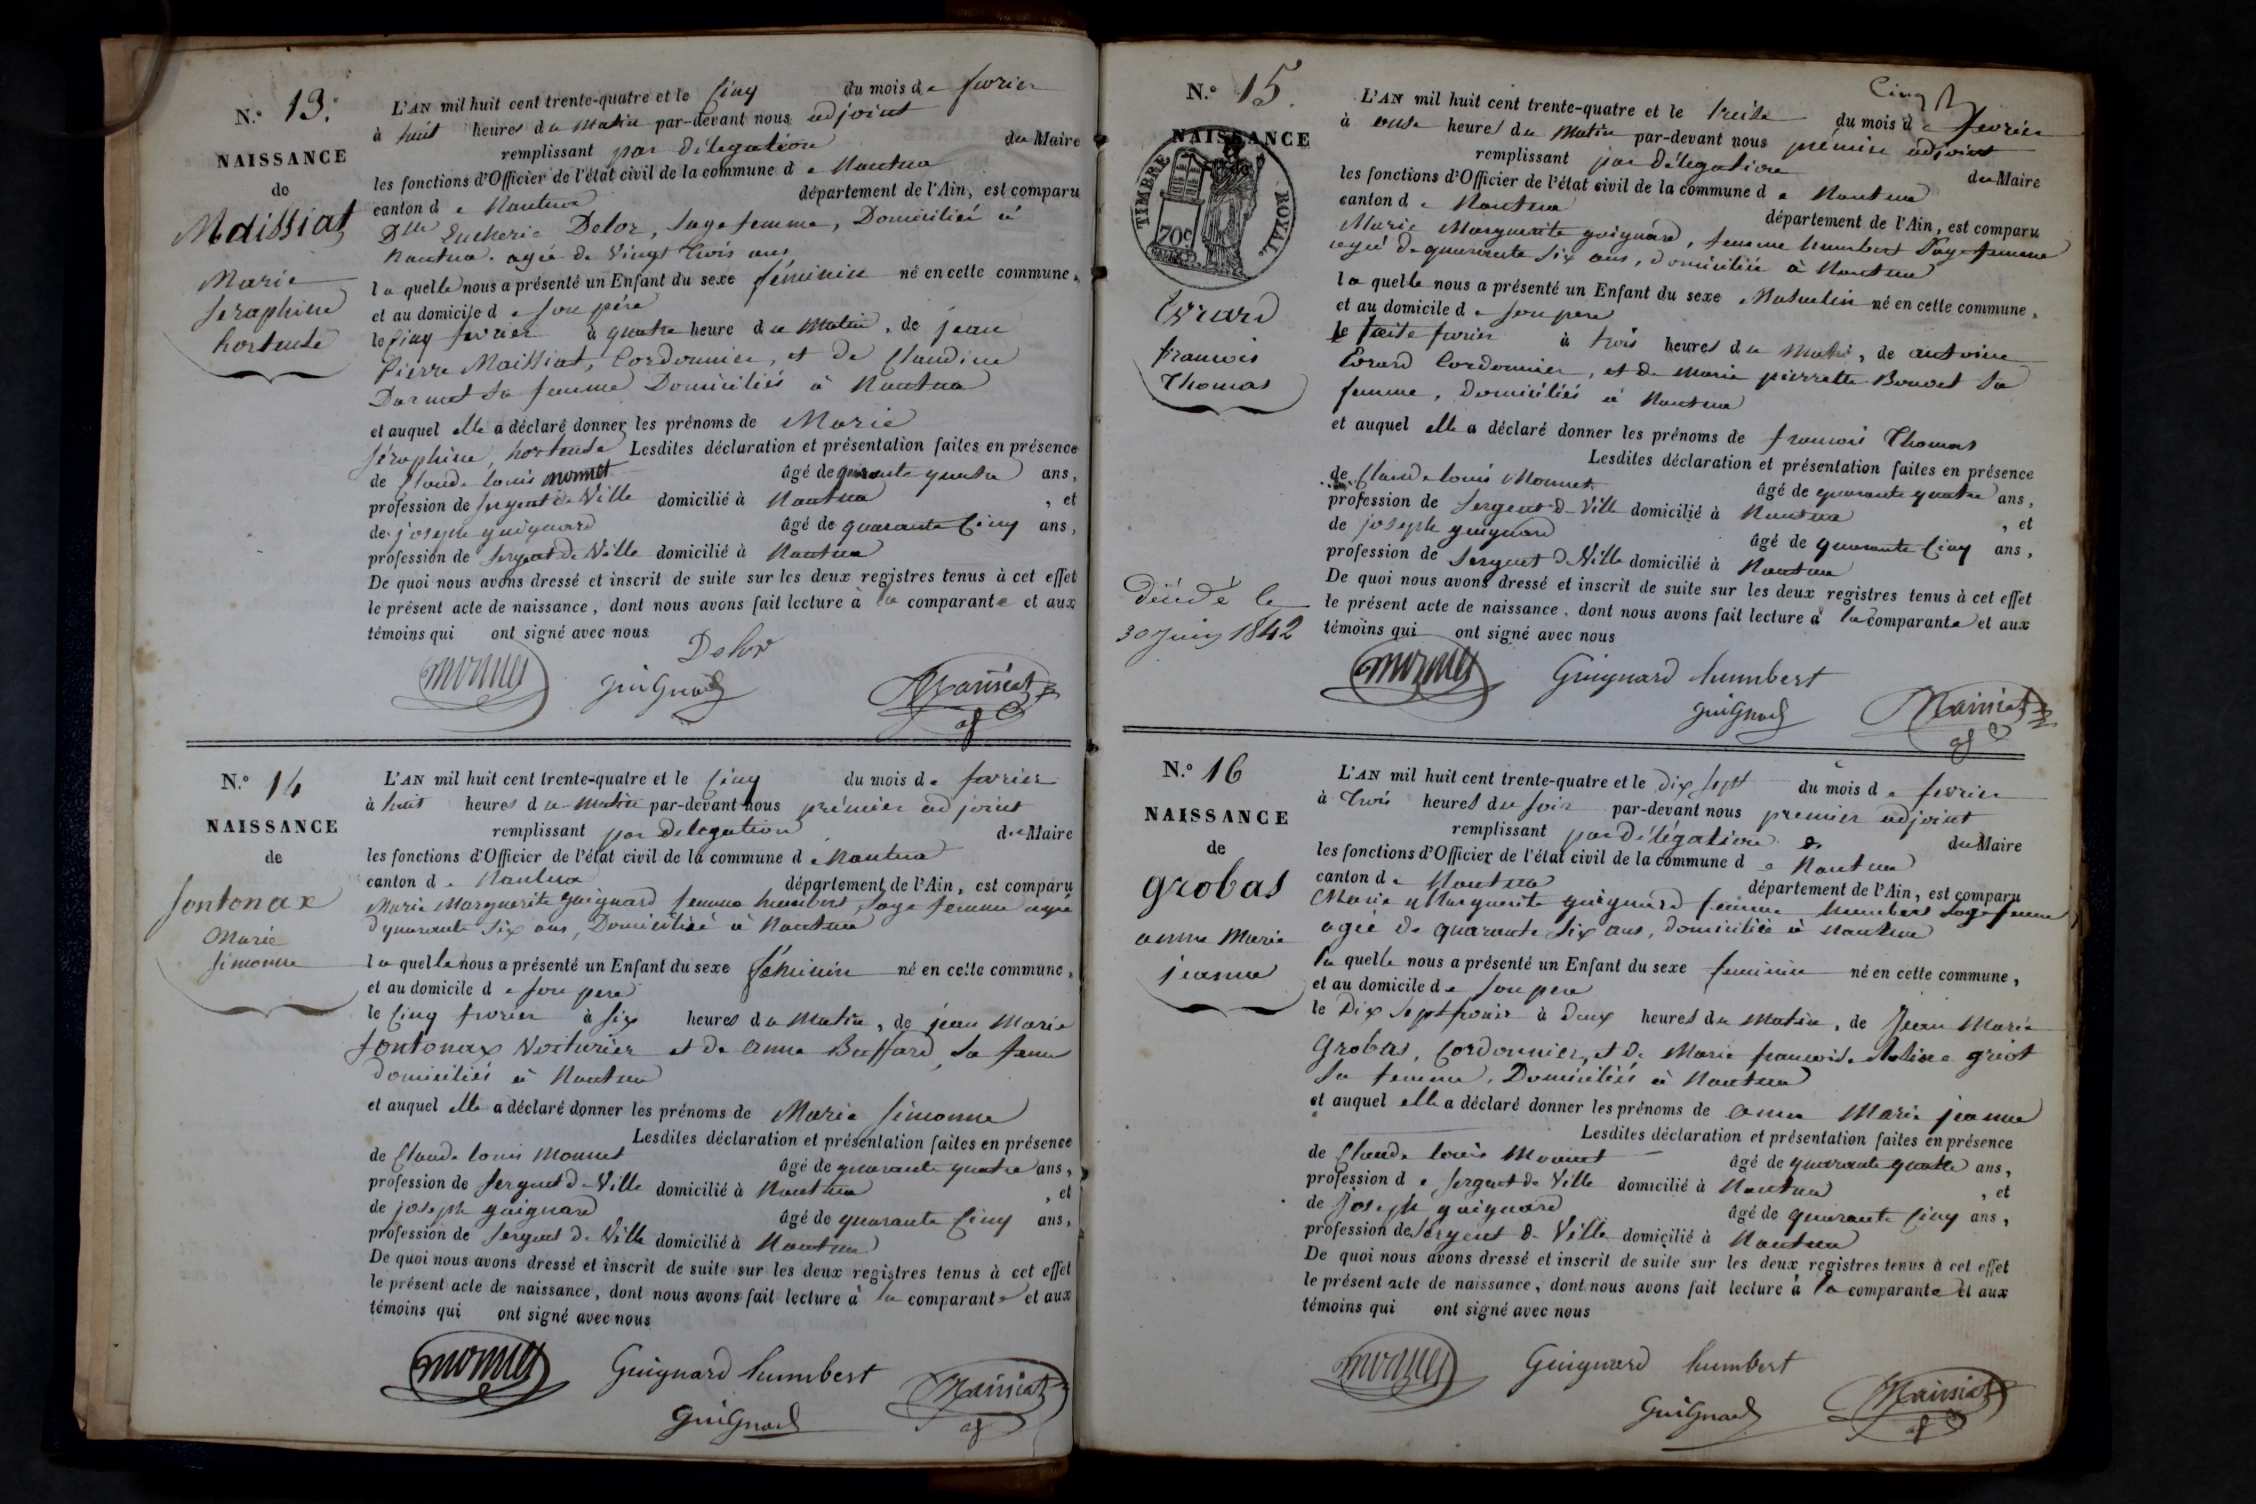 N.º 13.
NAISSANCE
de
Maissiat
Marie
Seraphine
hortense
L'AN mil huit cent trente-quatre et le Cinq du mois de fevrier
à huit heures du matin par-devant nous adjoint
remplissant par délégation du Maire
les fonctions d'Officier de l'état civil de la commune de Nantua
canton de Nantua département de l'Ain, est comparu
Dlle Delor, Sage femme, Domiciliée à
Nantua. agée de Vingt trois ans
laquelle nous a présenté un Enfant du sexe féminin né en cette commune,
et au domicile de son père
le Cinq fevrier à quatre heure du matin, de jean
Pierre Maissiat, Cordonnier, et de Claudine
Darmet sa femme Domiciliés à Nantua
et auquel elle a déclaré donner les prénoms de Marie
Séraphine, hortense Lesdites déclaration et présentation faites en présence
de Claude Louis monnet âgé de quarante quatre ans,
profession de Sergent de Ville domicilié à Nantua, et
de joseph guignard âgé de quarante Cinq ans,
profession de Sergent de Ville domicilié à Nantua
De quoi nous avons dressé et inscrit de suite sur les deux registres tenus à cet effet
le présent acte de naissance, dont nous avons fait lecture à la comparante et aux
témoins qui ont signé avec nous
Delor
monnet GuiGnard Maissiat
adj
N.º 14
NAISSANCE
de
fontonax
Marie
Simonne
L'AN mil huit cent trente-quatre et le Cinq du mois de fevrier
à huit heures du matin par-devant nous prémier adjoint
remplissant par délegation du Maire
les fonctions d'Officier de l'état civil de la commune de Nantua
canton de Nantua département de l'Ain, est comparu
Marie Marguerite guignard femme humbert, Sage femme agée
de quarante Six ans, Domiciliée à Nantua
laquelle nous a présenté un Enfant du sexe féminin né en cette commune,
et au domicile de son pere
le Cinq fevrier à Six heures du matin, de jean Marie
fontonax Voiturier et de anne Buffard, sa femme
domiciliés à Nantua
et auquel elle a déclaré donner les prénoms de Marie Simonne
Lesdites déclaration et présentation faites en présence
de Claude Louis Monnet âgé de quarante quatre ans,
profession de Sergent de Ville domicilié à Nantua, et
de joseph guignard âgé de quarante Cinq ans,
profession de Sergent de Ville domicilié à Nantua
De quoi nous avons dressé et inscrit de suite sur les deux registres tenus à cet effet
le présent acte de naissance, dont nous avons fait lecture à la comparante et aux
témoins qui ont signé avec nous
monnet Guignard humbert Maissiat
GuiGnard adj
Cinq
N.º 15.
NAISSANCE
TIMBRE ROYAL
70c
Evrard
francois
Thomas
décédé le
30 Juin 1842
L'AN mil huit cent trente-quatre et le treize du mois de fevrier
à onze heures du Matin par-devant nous prémier adjoint
remplissant par délégation du Maire
les fonctions d'Officier de l'état civil de la commune de Nantua
canton de Nantua département de l'Ain, est comparu
Marie Marguerite guignard, femme humbert Sage femme
agée de quarante Six ans, domiciliée à Nantua
laquelle nous a présenté un Enfant du sexe Masculin né en cette commune,
et au domicile de son pere
le treize fevrier à trois heures du Matin, de antoine
Evrard Cordonnier, et de marie pierrette Bouvet sa
femme, domiciliés à Nantua
et auquel elle a déclaré donner les prénoms de francois Thomas
Lesdites déclaration et présentation faites en présence
de Claude Louis Monnet âgé de quarante quatre ans,
profession de Sergent de Ville domicilié à Nantua, et
de joseph guignard âgé de quarante Cinq ans,
profession de Sergent de Ville domicilié à Nantua
De quoi nous avons dressé et inscrit de suite sur les deux registres tenus à cet effet
le présent acte de naissance, dont nous avons fait lecture à la comparante et aux
témoins qui ont signé avec nous
monnet Guignard humbert
GuiGnard Maissiat
adj
N.º 16
NAISSANCE
de
grobas
anne Marie
jeanne
L'AN mil huit cent trente-quatre et le dix Sept du mois de fevrier
à trois heures du Soir par-devant nous premier adjoint
remplissant par délégation du Maire
les fonctions d'Officier de l'état civil de la commune de Nantua
canton de Nantua département de l'Ain, est comparu
Marie Marguerite guignard femme humbert Sage femme
agée de quarante Six ans, domiciliée à Nantua
laquelle nous a présenté un Enfant du sexe feminin né en cette commune,
et au domicile de son pere
le Dix Sept fevrier à deux heures du Matin, de Jean Marie
Grobas, Cordonnier, et de Marie francoise griot
sa femme, Domiciliés à Nantua
et auquel elle a déclaré donner les prénoms de anne Marie jeanne
Lesdites déclaration et présentation faites en présence
de Claude Louis Monnet âgé de quarante quatre ans,
profession de Sergent de Ville domicilié à Nantua, et
de Joseph guignard âgé de quarante Cinq ans,
profession de Sergent de Ville domicilié à Nantua
De quoi nous avons dressé et inscrit de suite sur les deux registres tenus à cet effet
le présent acte de naissance, dont nous avons fait lecture à la comparante et aux
témoins qui ont signé avec nous
monnet Guignard humbert
GuiGnard Maissiat
adj